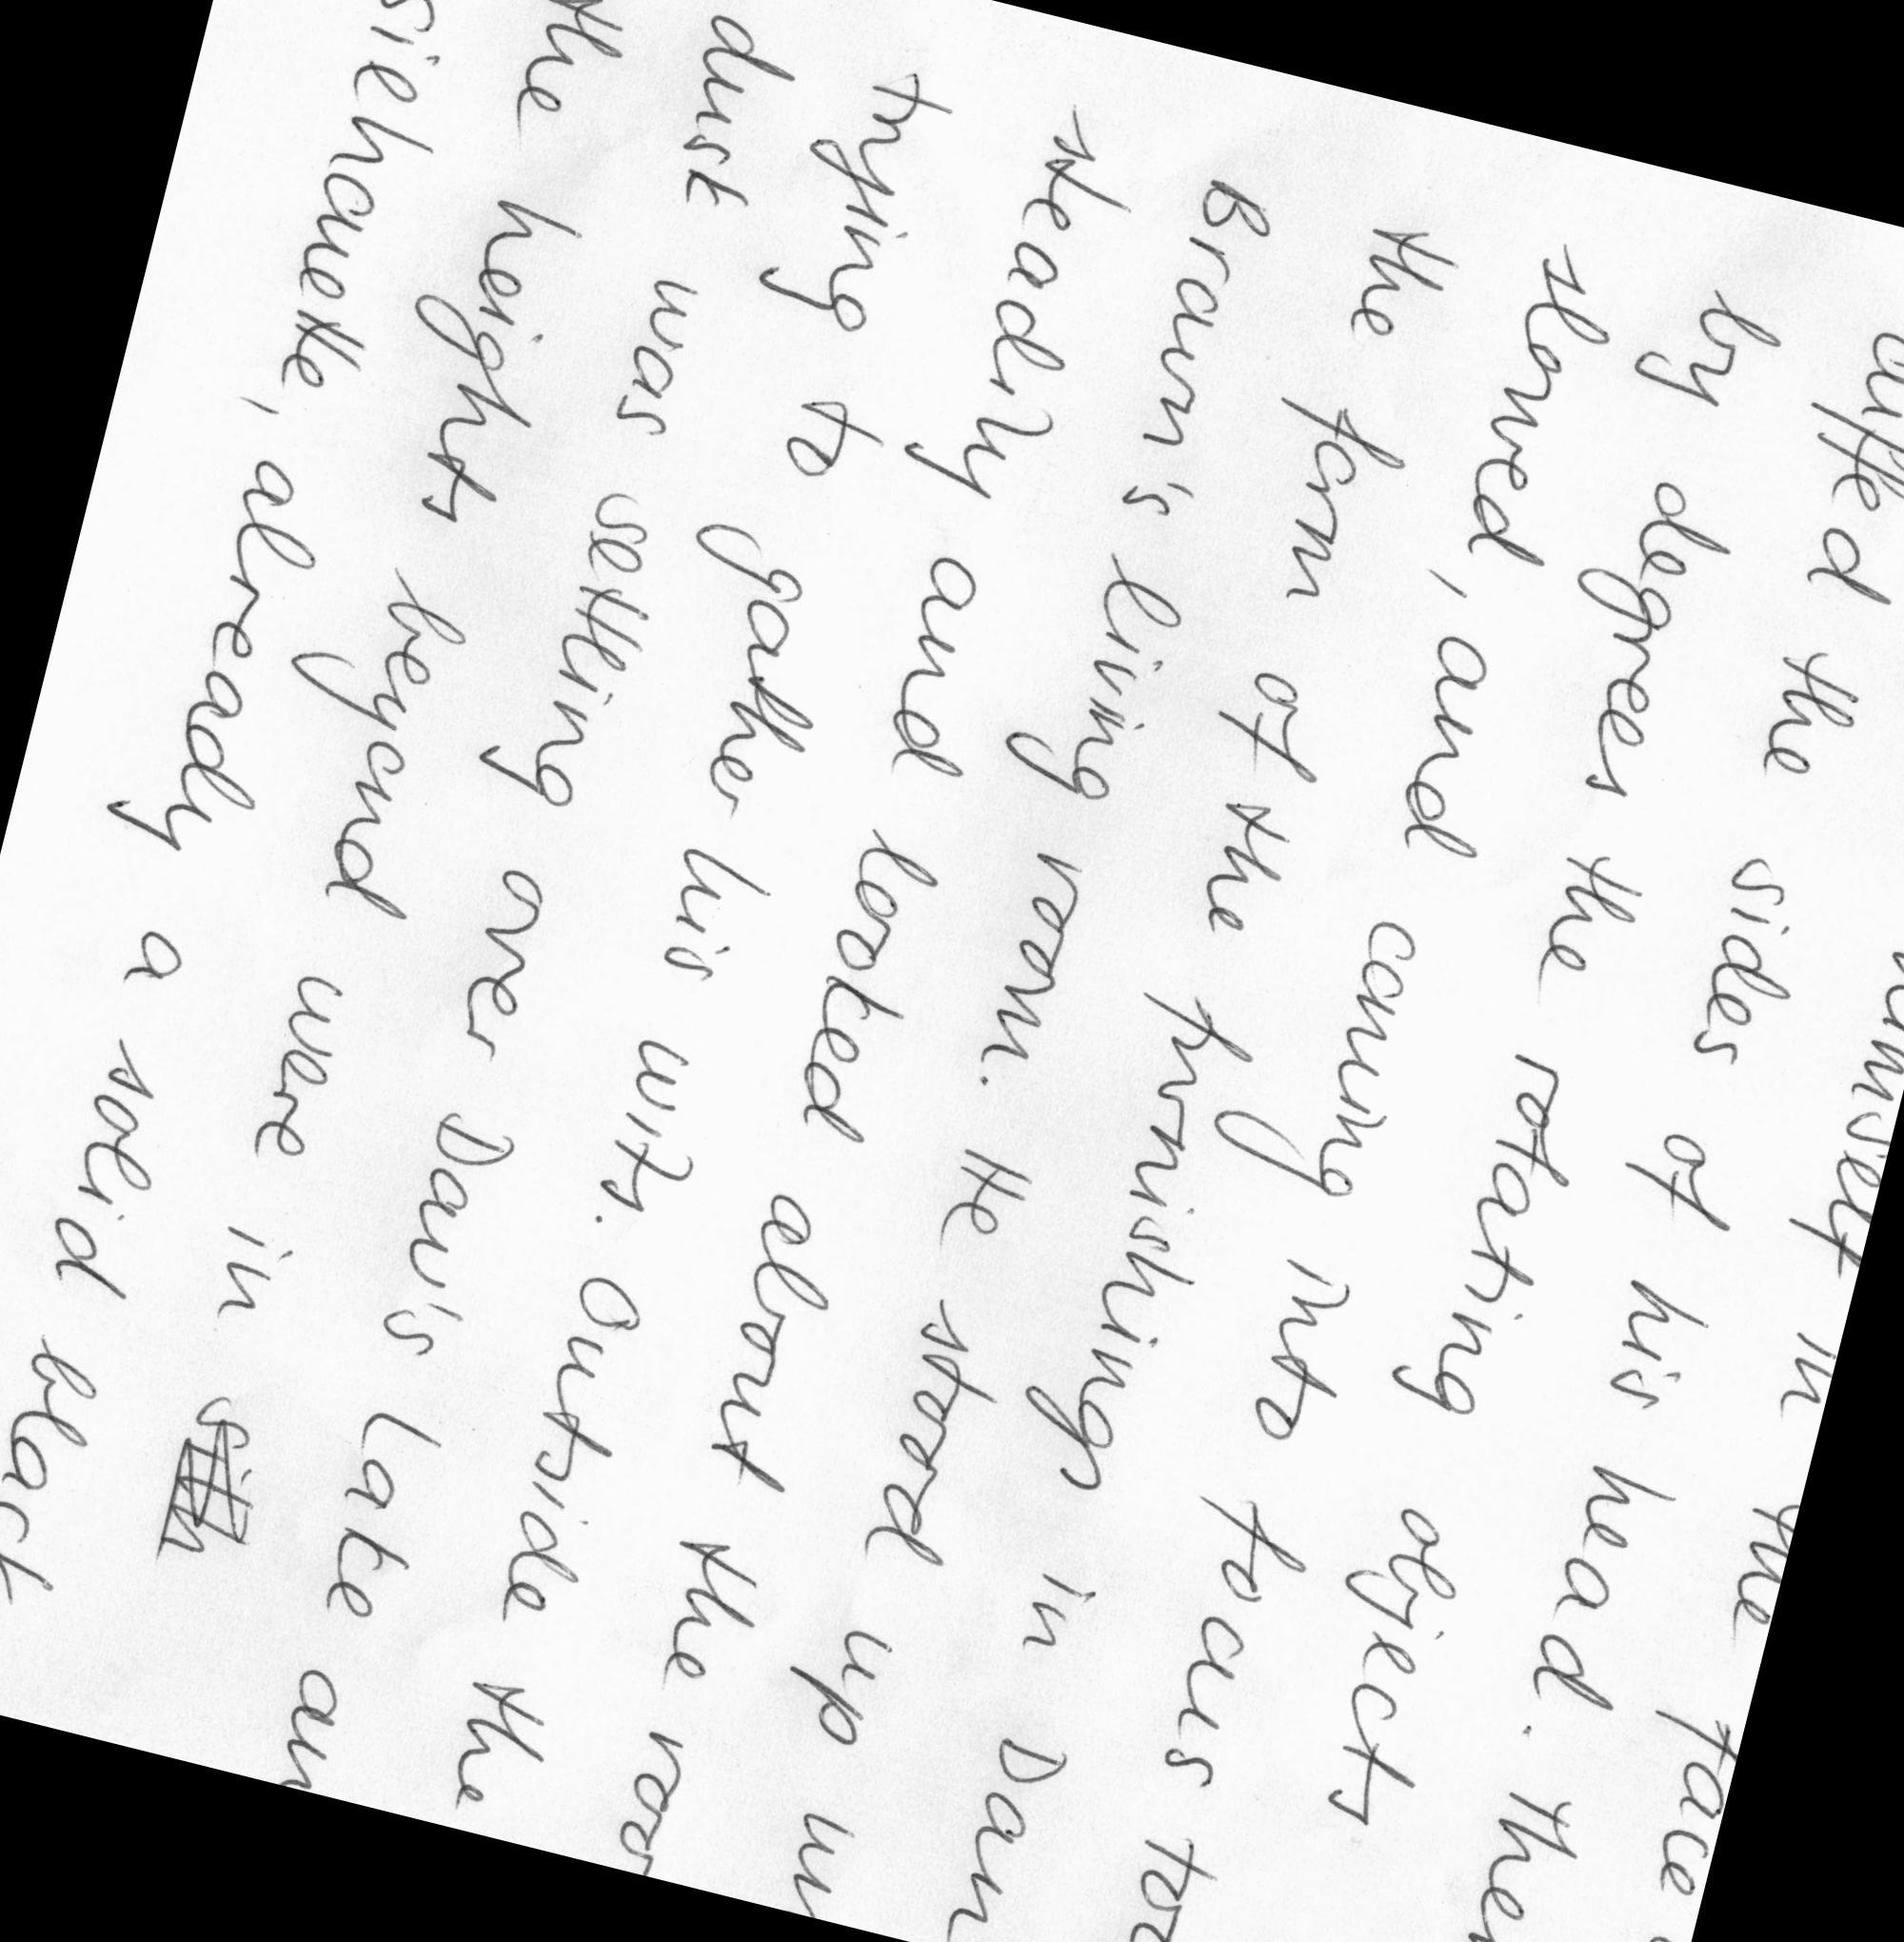 himself in the face
cuffed the sides of his head. Then
by degrees the rotating objects
slowed, and coming into focus too
the form of the furnishings in Dan
Braun's living room. He stood up un
steadily and looked about the roo
trying to gather his wits. Outside the
dusk was settling over Dan's lake an
the heights beyond were in
siehouette, already a solid black